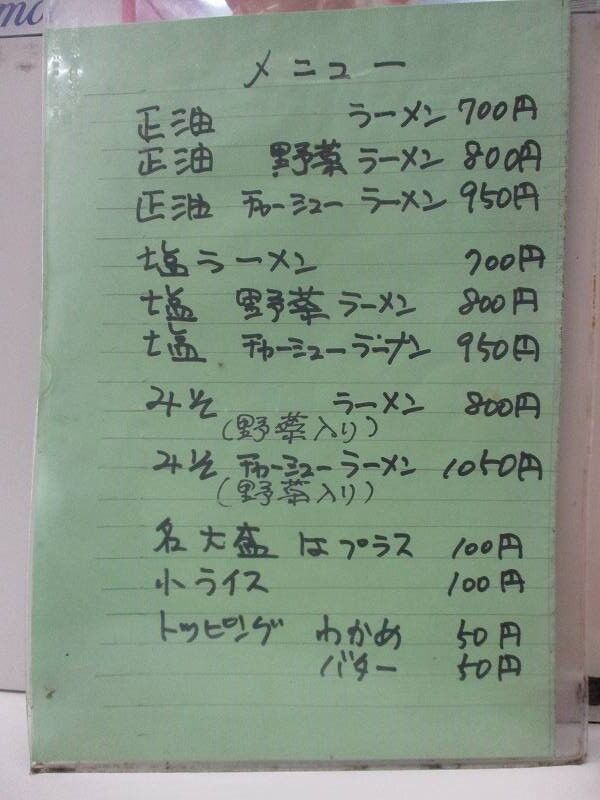 メニュー
正油 ラーメン 700円
正油 野菜 ラーメン 800円
正油 チャーシュー ラーメン 950円
塩ラーメン 700円
塩 野菜 ラーメン 800円
塩 チャーシューラーメン 950円
みそ ラーメン 800円
(野菜入り)
みそ チャーシューラーメン 1050円
(野菜入り)
名大盛はプラス 100円
小ライス 100円
トッピング わかめ 50円
バター 50円